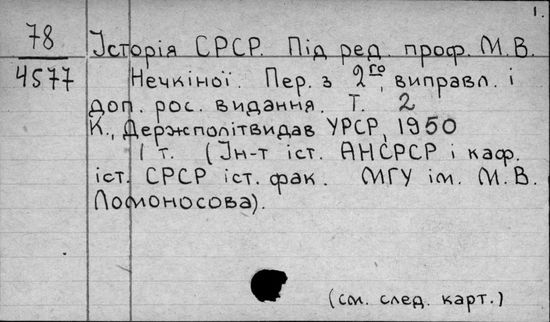 1.
78 Історія СРСР. Під ред. проф. М.В.
4577 Нечкіної. Пер. з 2го, виправл. і
доп. рос. видання. Т. 2
К., Держполітвидав УРСР, 1950
1 т. (Ін-т іст. АНСРСР і каф.
іст. СРСР іст. фак. МГУ ім. М.В.
Ломоносова).
(см. след. карт.)